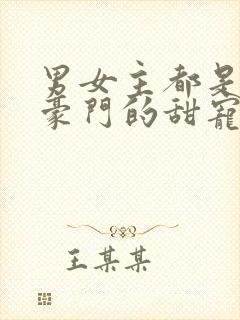 男女主都是
豪門的甜寵
王某某